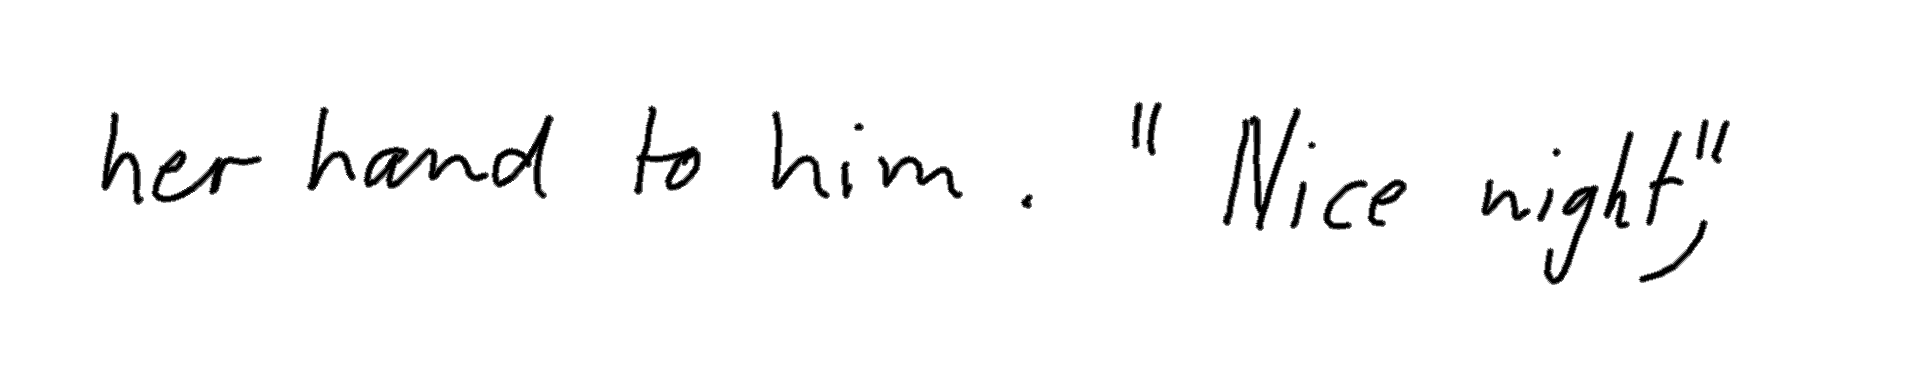 her hand to him. "Nice night,"